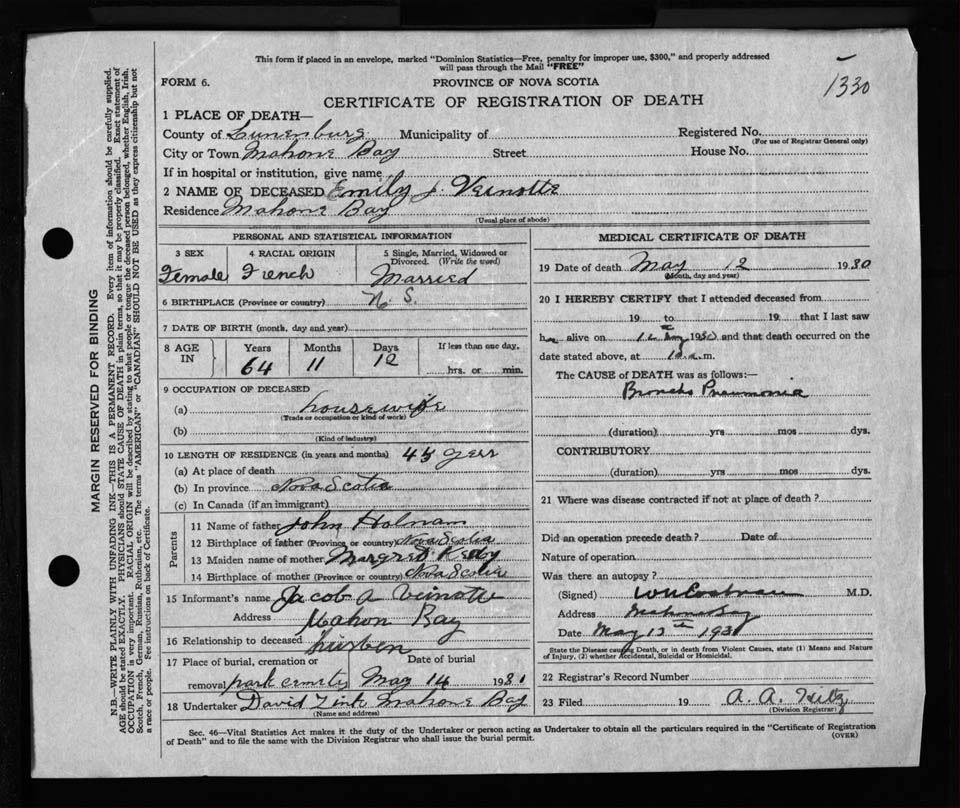 This form if placed in an envelope, marked "Dominion Statistics—Free, penalty for improper use, $300," and properly addressed
will pass through the Mail "FREE"
1330
FORM 6.
PROVINCE OF NOVA SCOTIA
CERTIFICATE OF REGISTRATION OF DEATH
1 PLACE OF DEATH—
County of Lunenburg Municipality of Registered No.
(For use of Registrar General only)
City or Town Mahone Bay Street House No.
If in hospital or institution, give name
2 NAME OF DECEASED Emily J. Veinotte
Residence Mahone Bay
(Usual place of abode)
PERSONAL AND STATISTICAL INFORMATION
3 SEX 4 RACIAL ORIGIN 5 Single, Married, Widowed or Divorced. (Write the word)
Female French Married
6 BIRTHPLACE (Province or country) N. S.
7 DATE OF BIRTH (month, day and year)
8 AGE IN Years Months Days If less than one day,
64 11 12 hrs. or min.
9 OCCUPATION OF DECEASED
(a) housewife
(Trade or occupation or kind of work)
(b)
(Kind of industry)
10 LENGTH OF RESIDENCE (in years and months) 45 yers
(a) At place of death
(b) In province Nova Scotia
(c) In Canada (if an immigrant)
Parents
11 Name of father John
12 Birthplace of father (Province or country) Nova Scotia
13 Maiden name of mother Margret
14 Birthplace of mother (Province or country) Nova Scotia
15 Informant's name Jacob A Veinotte
Address Mahon Bay
16 Relationship to deceased husben
17 Place of burial, cremation or Date of burial
removal park May 14 1930
18 Undertaker David Zink Mahone Bay
(Name and address)
MEDICAL CERTIFICATE OF DEATH
19 Date of death May 12 1930
(Month, day and year)
20 I HEREBY CERTIFY that I attended deceased from
19 to 19 that I last saw
her alive on 12 May 1930 and that death occurred on the
date stated above, at 10 a.m.
The CAUSE of DEATH was as follows:—
Broncho Pneumonia
(duration) yrs mos dys.
CONTRIBUTORY
(duration) yrs mos dys.
21 Where was disease contracted if not at place of death?
Did an operation precede death? Date of
Nature of operation
Was there an autopsy?
(Signed) M.D.
Address Mahone Bay
Date May 13th 1930
State the Disease causing Death, or in death from Violent Causes, state (1) Means and Nature
of Injury, (2) whether Accidental, Suicidal or Homicidal.
22 Registrar's Record Number
23 Filed 19 A. A.
(Division Registrar)
Sec. 46—Vital Statistics Act makes it the duty of the Undertaker or person acting as Undertaker to obtain all the particulars required in the "Certificate of Registration
of Death" and to file the same with the Division Registrar who shall issue the burial permit.
(OVER)
MARGIN RESERVED FOR BINDING
N.B.—WRITE PLAINLY WITH UNFADING INK—THIS IS A PERMANENT RECORD. Every item of information should be carefully supplied.
AGE should be stated EXACTLY. PHYSICIANS should STATE CAUSE OF DEATH in plain terms, so that it may be properly classified. Exact statement of
OCCUPATION is very important. RACIAL ORIGIN will be described by stating to what people or tongue the deceased person belonged, whether English, Irish,
Scotch, French, German, Russian, Ruthenian, etc. The terms "AMERICAN" or "CANADIAN" SHOULD NOT BE USED as they express citizenship but not
a race or people. See instructions on back of Certificate.